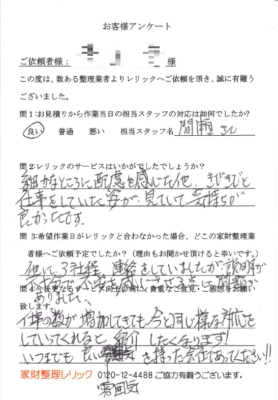 お客様アンケート
ご依頼者様： 様
この度は、数ある整理業者よりレリックへご依頼を頂き、誠に有難う
ございました。
問1：お見積りから作業当日の担当スタッフの対応は如何でしたか？
良い 普通 悪い 担当スタッフ名 間瀬 さん
問2：レリックのサービスはいかがでしたでしょうか？
細かなところに配慮を感じた他、きびきびと
仕事をしていた姿が、見ていて気持ちが
良かったです。
問3：希望作業日がレリックと合わなかった場合、どこの家財整理業
者様へご依頼予定でしたか？（理由もお聞かせ頂けると幸いです）
他に、3社程、連絡をしていましたが
ありました。
致します。
仕事の数が増加してきても今と同じ様な対応を
していってくれると、紹介したくなります！
いつまでも良い雰囲気を持った会社であってください!!
家財整理レリック 0120-12-4488 ご協力有難うございます。